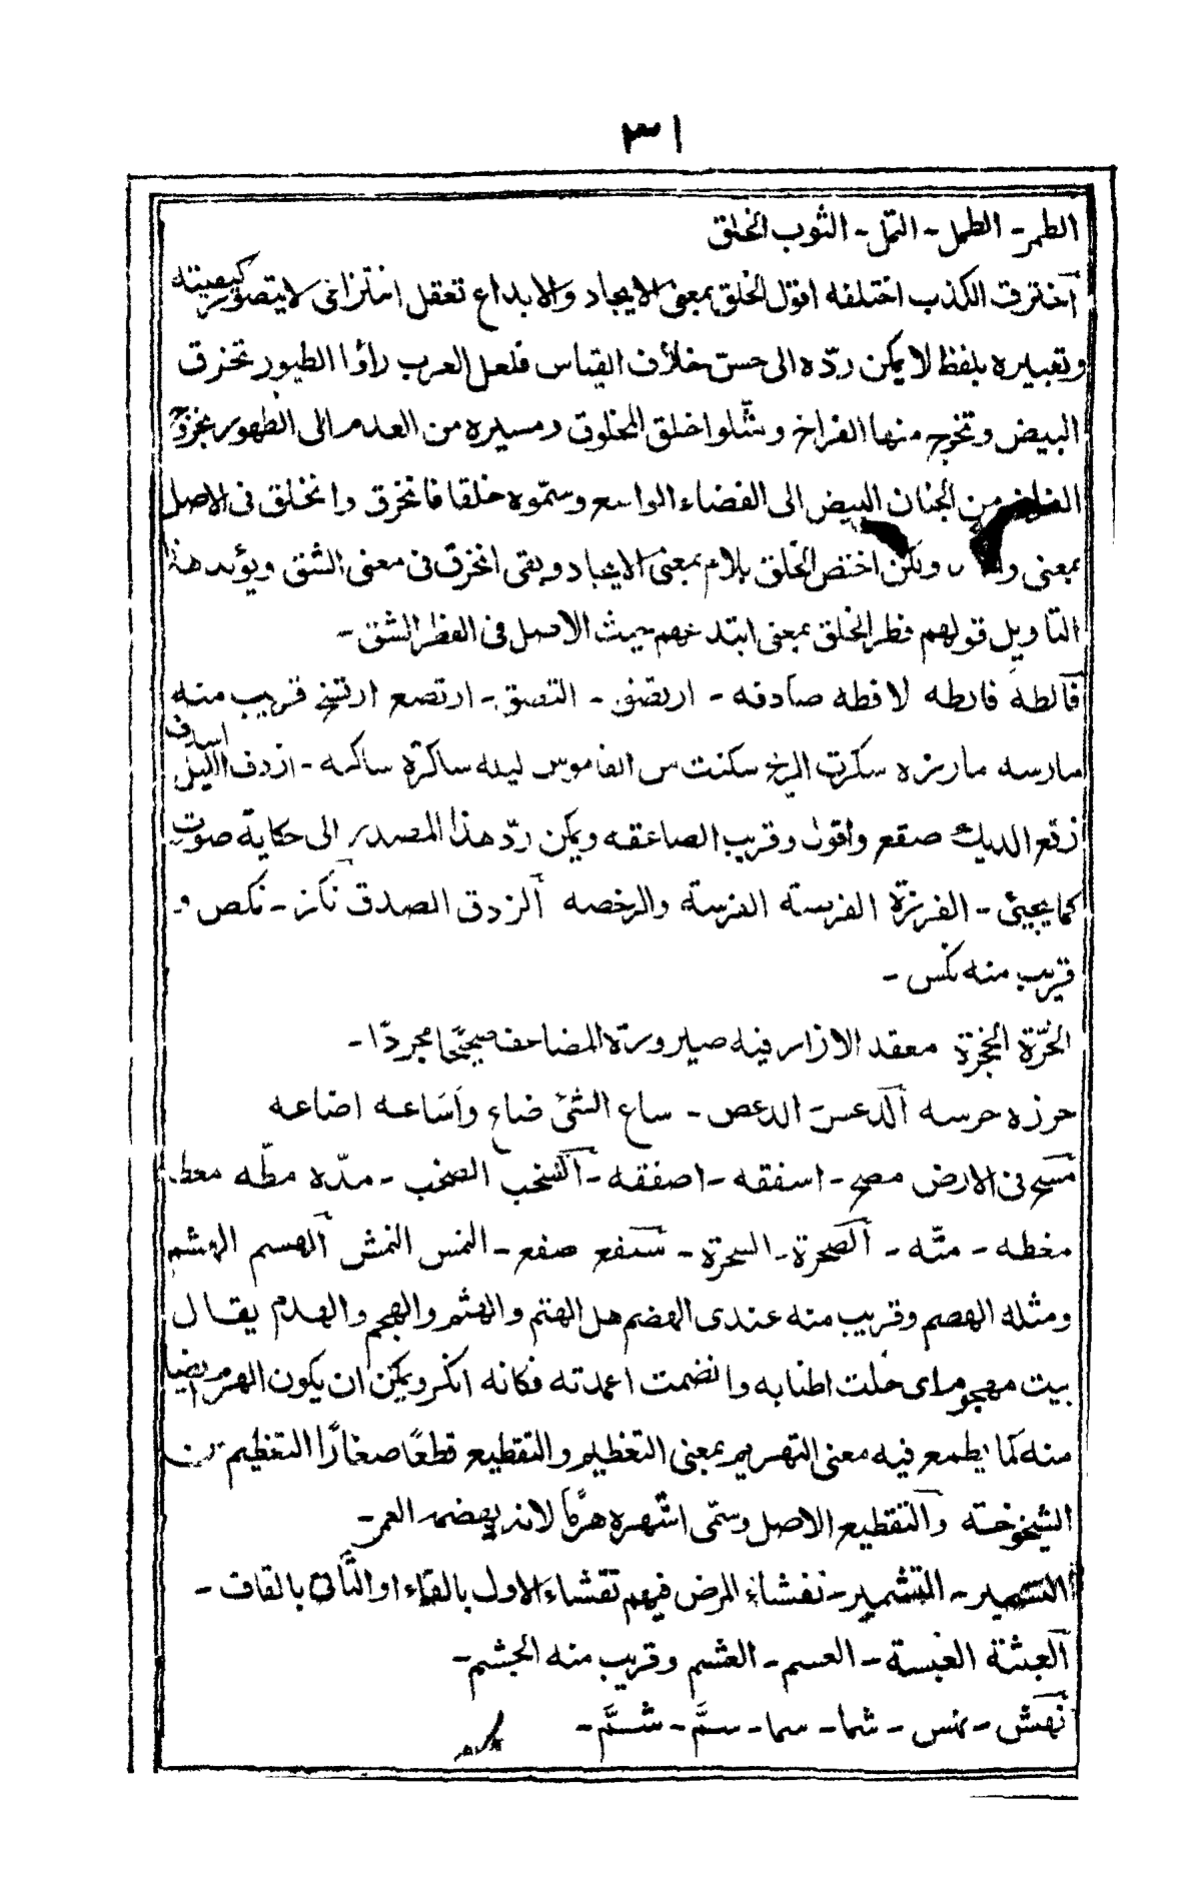 ٣١
الطمر - الطمل - الثمل - الثوب الخلق
آخترق الكذب اختلقه اقول الخلق بمعنى الايجاد والابداع تعقل اختراعى لايتصور كيفيته
وتعبيره بلفظ لا يمكن ردّه الى حسن خلاف القياس فلعل العرب رأوا الطيور تخرق
البيض وتخرج منها الفراخ ومثّلوا خلق المخلوق ومسيره من العدم الى الظهور بخروج
الفراخ من الجنان البيض الى الفضاء الواسع وسمّوه خلقا فانخرق وانخلق فى الاصل
بمعنى ولكن اختص الخلق بلام بمعنى الايجاد وبقى انخرق فى معنى الشق ويؤيد هذا
التاويل قولهم فطر الخلق بمعنى ابتدءهم حيث الاصل فى الفطر الشق -
قالطه فارطه لافطه صادفه - اربضنى - التصق - ارتصع ارتسخ قريب منه
مارسه مارزه سكرت الريح سكنت س القاموس ليله ساكرة ساكنه - ازدف الليل اسدف
زقع الديك صقع واقول وقريب الصاعقه ويمكن ردّ هذا المصدر الى حكاية صوت
كما يجيئ - الفرزة الفريسته الفرسة والرخصه آلزدق الصدق نكز - نكص و -
قريب منه نكس -
الحزّة الحجزة معقد الازار فيه صيرورة المضاعف صحيحًا مجردًا -
حرزه حرسه آلدعس الدعص - ساع الشئ ضاع وآساعه اضاعه
مسح فى الارض مصح - اسفقه - اصفقه - آلسخب الصخب - مدّه مطّه معط
مغطه - متّه - آلصحرة - السحرة - سفع صفع - النمس النمش آلهسم الهشم
ومثله الهصم وقريب منه عندى الهضم هل الهتم والهثم والهجم والهدم يقال
بيت مهجوم اى حلت اطنابه وانضمت اعمدته فكانه انكر ويمكن ان يكون الهرم ايضا
منه كما يطمع فيه معنى التهريم بمعنى التغظيم والتقطيع قطعًا صغارًا التغظيم من
الشيخوخته والتقطيع الاصل وسمّى اشهره هرمًا لانه يهضمه العمر -
التسمير - التشمير - نفشاء المرض فيهم تقشاء الاول بالفاء او الثانى بالقاف -
آلعبثة الغبسة - العسم - العشم وقريب منه الجشم -
نهش - نهس - شما - سما - سمَّ - شمَّ -